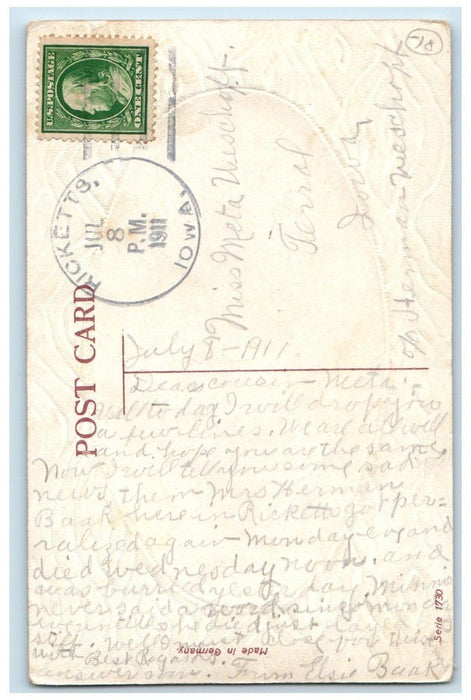 78
U.S. POSTAGE
ONE CENT
RICKETTS, IOWA.
JUL
8
P.M.
1911
Miss Meta Weschopf.
Terral
Iowa
c/o Herman Weschopf
POST CARD
July 8 - 1911.
Dear cousin - Meta. -
Well to day I will drop you
a few lines. We are all well
and hope you are the same.
Now I will tell you some sad
news them Mrs Herman
Baak here in Ricketts got per-
ralized again Monday eve and
died Wednesday noon. and
was burried yesterday. Minnie
never said a word since monday
eve until she died just layed
still. Well I must close for this
with Best Regards.
answer soon. From Elsie Baak
Made in Germany
Serie 1730